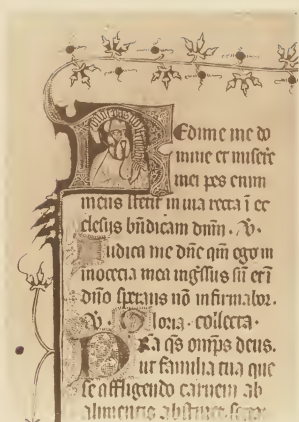 Redime me do
mine et misere
mei pes enim
meus stetit in uia recta ī ec
clesijs bn̄dicam dnm̄ .
Judica me dn̄e qm̄ ego in
inocēcia mea ingr̄ssus sū et ī
dn̄o sperans nō infirmabor.
Gloria. collecta.
Pra q̄s omp̄s deus.
ut familia tua que
se affligendo carnem ab
alimentis abstinet.